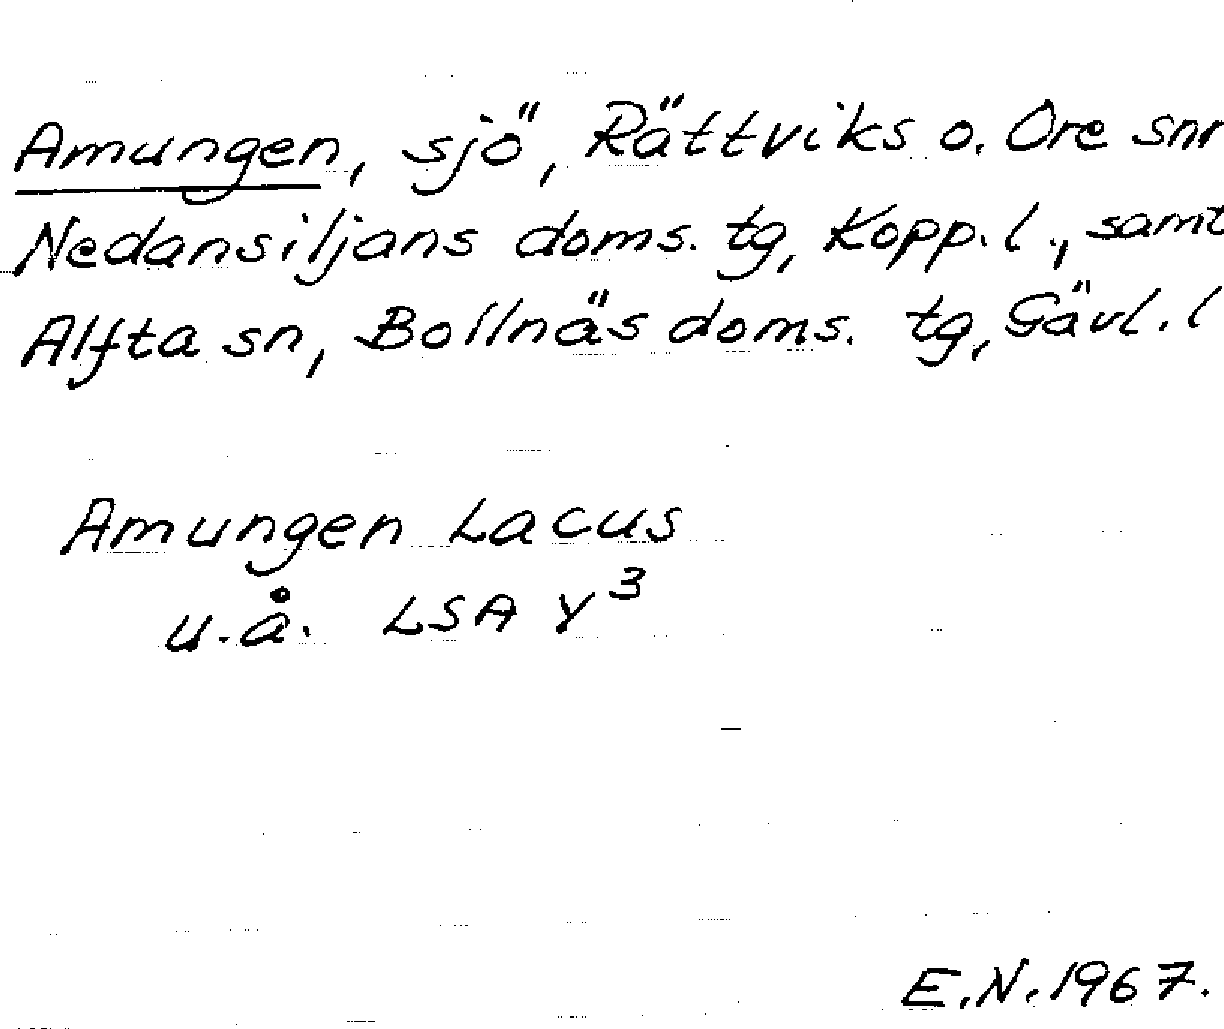 Amungen, sjö, Rättviks o. Ore snr
Nedansiljans doms. tg, Kopp. l., samt
Alfta sn, Bollnäs doms. tg, Gävl. l
Amungen Lacus
u.å. LSA Y³
E.N. 1967.